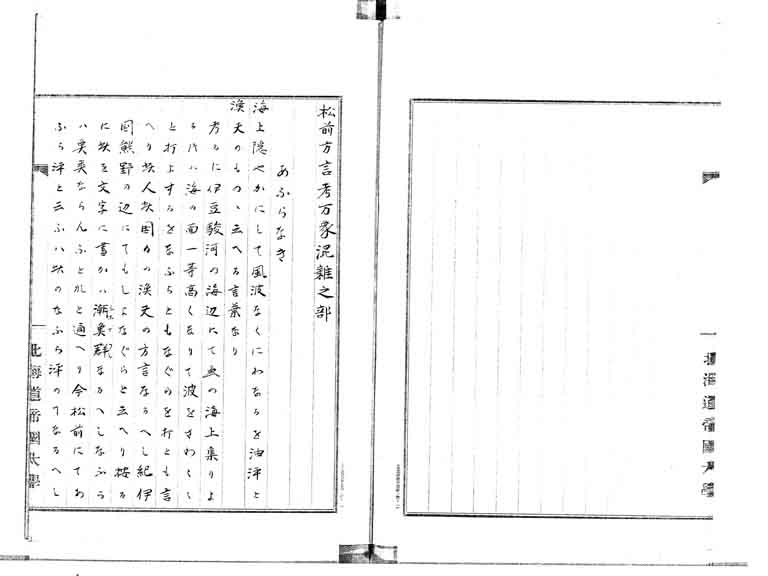 松前方言考万象混雑之部
あふらなき
海上穏やかにして風波なくにわなるを油浮と
漁夫のものゝ云へる言葉なり
考るに伊豆駿河の海辺にて魚の海上集りよ
る代ハ海の面一等高くなりて波をさわくく
と打よするをなふらともなぐろを打とも言
へり故人故国方の漢夫の方言なるへし紀伊
国熊野の辺にてもしよなぐらと云へり按る
に此を文字に書かハ潮奥群なるへしなふら
ハ奥奥ならんふとかと通へり今松前にてあ
ふら浮と云ふハ此のなふら浮のてなるへし
北海道帝國大學
北海道帝國大學